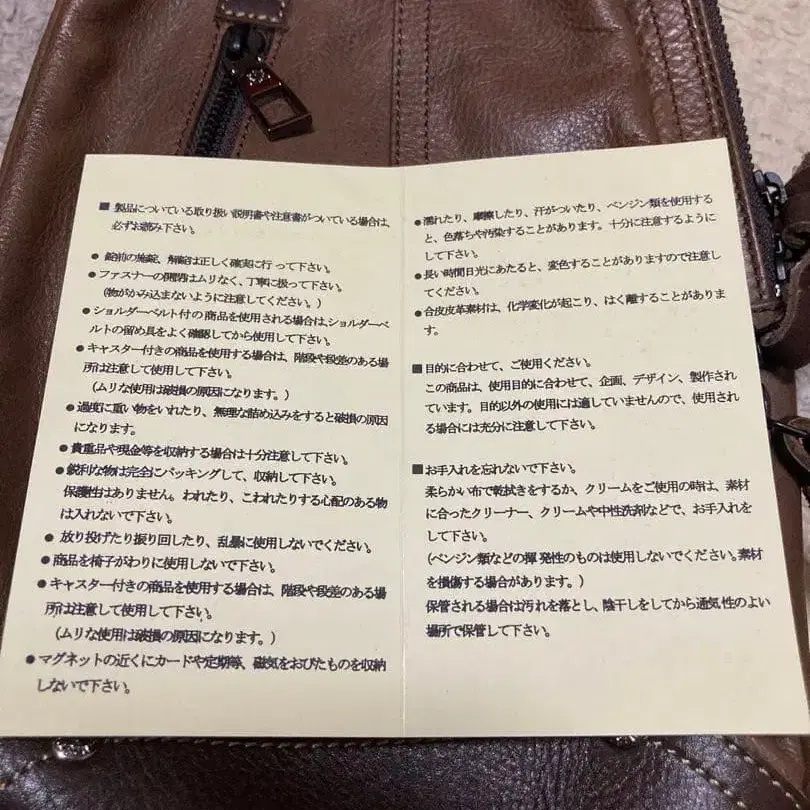 ■ 製品についている取り扱い説明書や注意書がついている場合は、
必ずお読み下さい。
● 錠前の施錠、解錠は正しく確実に行って下さい。
● ファスナーの開閉はムリなく、丁寧に扱って下さい。
(物がかみ込まないように注意してください。)
● ショルダーベルト付の商品を使用される場合は、ショルダーベ
ルトの留め具をよく確認してから使用して下さい。
● キャスター付きの商品を使用する場合は、階段や段差のある場
所は注意して使用して下さい。
(ムリな使用は破損の原因になります。)
● 過度に重い物をいれたり、無理な詰め込みをすると破損の原因
になります。
● 貴重品や現金等を収納する場合は十分注意して下さい。
● 鋭利な物は完全にパッキングして、収納して下さい。
保護性はありません。われたり、こわれたりする心配のある物
は入れないで下さい。
● 放り投げたり振り回したり、乱暴に使用しないでください。
● 商品を椅子がわりに使用しないで下さい。
● キャスター付きの商品を使用する場合は、階段や段差のある場
所は注意して使用して下さい。
(ムリな使用は破損の原因になります。)
● マグネットの近くにカードや定期等、磁気をおびたものを収納
しないで下さい。
● 濡れたり、摩擦したり、汗がついたり、ベンジン類を使用する
と、色落ちや汚染することがあります。十分に注意するように
して下さい。
● 長い時間日光にあたると、変色することがありますので注意し
てください。
● 合皮皮革素材は、化学変化が起こり、はく離することがありま
す。
■ 目的に合わせて、ご使用ください。
この商品は、使用目的に合わせて、企画、デザイン、製作され
ています。目的以外の使用には適していませんので、使用され
る場合には充分に注意して下さい。
■ お手入れを忘れないで下さい。
柔らかい布で乾拭きをするか、クリームをご使用の時は、素材
に合ったクリーナー、クリームや中性洗剤などで、お手入れを
して下さい。
(ベンジン類などの揮発性のものは使用しないでください。素材
を損傷する場合があります。)
保管される場合は汚れを落とし、陰干しをしてから通気性のよい
場所で保管して下さい。